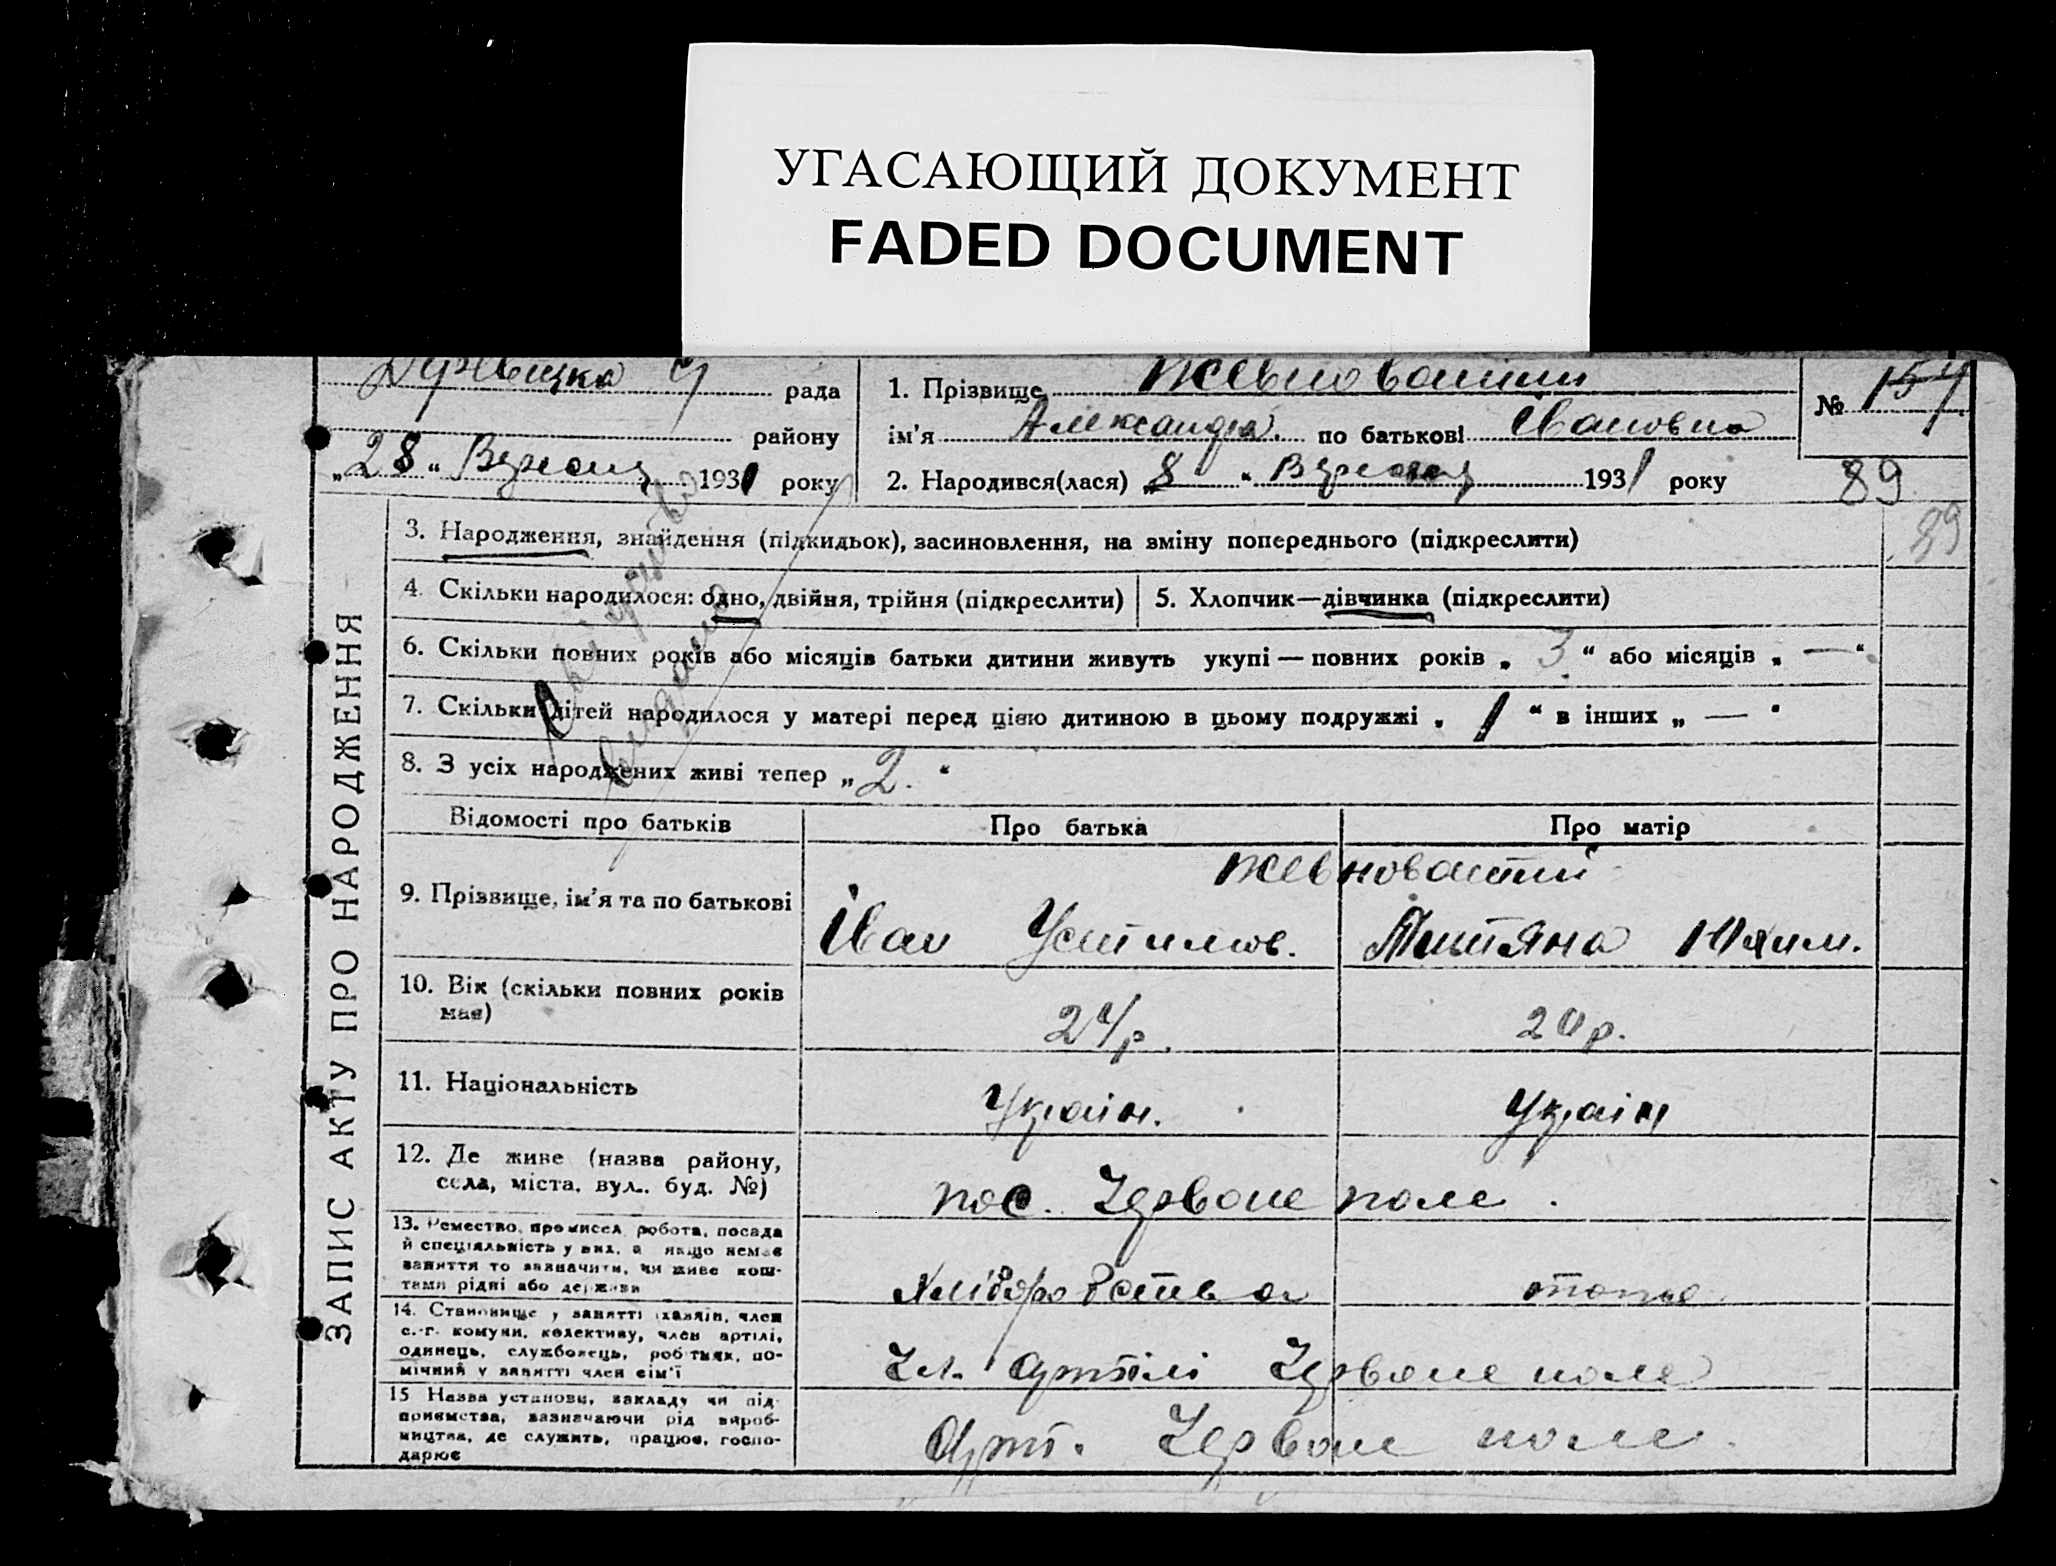 УГАСАЮЩИЙ ДОКУМЕНТ
FADED DOCUMENT
рада
району
„28“ Вересня 1931 року
1. Прізвище Жевноватий
ім'я Александра по батькові Івановна
2. Народився(лася) „8“ Вересня 1931 року
№ 154
89
89
ЗАПИС АКТУ ПРО НАРОДЖЕННЯ
3. Народження, знайдення (підкидьок), засиновлення, на зміну попереднього (підкреслити)
4. Скільки народилося: одно, двійня, трійня (підкреслити)
5. Хлопчик—дівчинка (підкреслити)
6. Скільки повних років або місяців батьки дитини живуть укупі — повних років „ 3 “ або місяців „ — “
7. Скільки дітей народилося у матері перед цією дитиною в цьому подружжі „ 1 “ в інших „ — “
8. З усіх народжених живі тепер „ 2. “
Відомості про батьків
Про батька
Про матір
9. Прізвище, ім'я та по батькові
Жевноватий
Іван Устимов.
Титяна Юхим.
10. Вік (скільки повних років
має)
24р.
20р.
11. Національність
Украін.
Украін
12. Де живе (назва району,
села, міста, вул.. буд. №)
пос. Червоне поле.
13. Ремество, промисел, робота, посада
й спеціяльність у них, а якщо немає
заняття то зазначити, чи живе кош-
тами рідні або держави
Хліборобства
тоже
14. Становище у занятті (хазяїн, член
с.-г. комуни, колективу, член артілі,
одинець, службовець, робітник, по-
мічний у занятті член сім'ї
Чл. артілі Червоне поле
15 Назва установи, закладу чи під-
приємства, зазначаючи рід вироб-
ництва, де служить, працює, госпо-
дарює
Арт. Червоне поле.